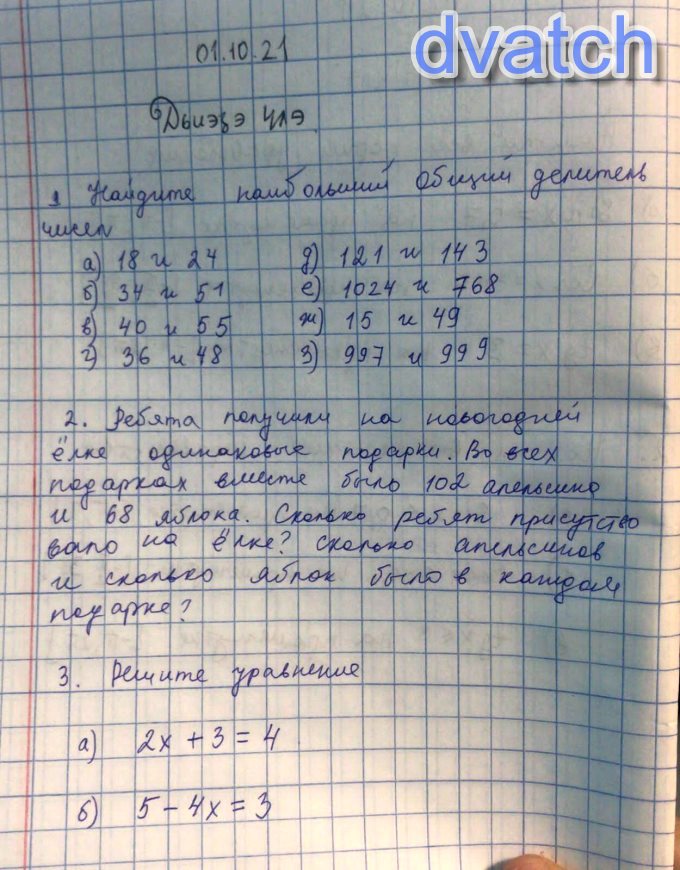 dvatch
01.10.21
Дьиэҕэ үлэ
1 Найдите наибольший общий делитель
чисел
а) 18 и 24 д) 121 и 143
б) 34 и 51 е) 1024 и 768
в) 40 и 55 ж) 15 и 49
г) 36 и 48 з) 997 и 999
2. Ребята получили на новогодней
ёлке одинаковые подарки. Во всех
подарках вместе было 102 апельсина
и 68 яблока. Сколько ребят присутство
вало на ёлке? Сколько апельсинов
и сколько яблок было в каждом
подарке?
3. Решите уравнение
а) 2x + 3 = 4
б) 5 - 4x = 3